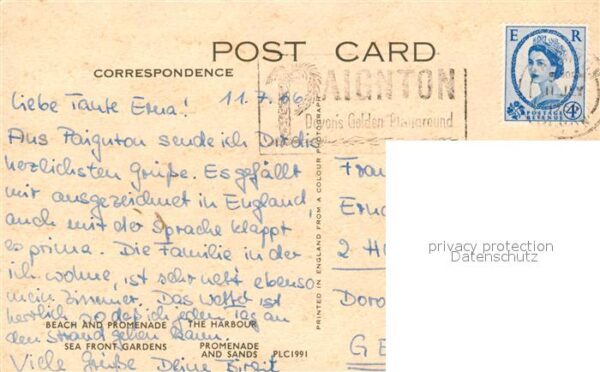 POST CARD
CORRESPONDENCE
E R
POSTAGE
REVENUE
4D
PAIGNTON
Devon's Golden Playground
Liebe Tante Erna! 11.7.66
Aus Paignton sende ich Dir die
herzlichsten Grüße. Es gefällt
mir ausgezeichnet in England
auch mit der Sprache klappt
es prima. Die Familie in der
ich wohne, ist sehr nett ebenso
mein Zimmer. Das Wetter ist
herrlich so daß ich jeden Tag an
den Strand gehen kann.
Viele Grüße Deine Birgit
BEACH AND PROMENADE THE HARBOUR
SEA FRONT GARDENS PROMENADE AND SANDS PLC1991
PRINTED IN ENGLAND FROM A COLOUR PHOTOGRAPH
Frau
Erna
2 H
Doro
GE
privacy protection
Datenschutz